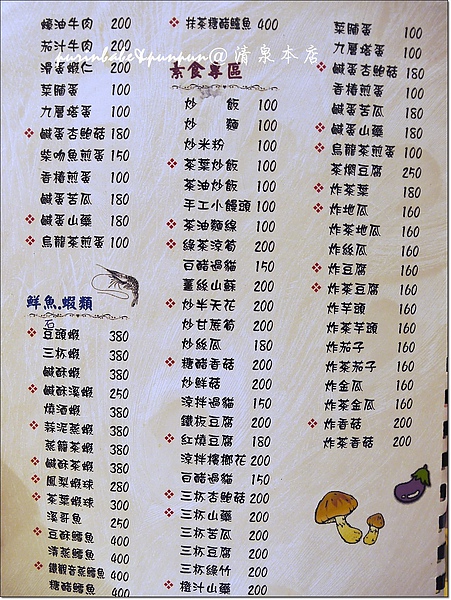 purinbabe&punpun@清泉本店
蠔油牛肉 200
茄汁牛肉 200
滑蛋蝦仁 200
菜脯蛋 100
九層塔蛋 100
鹹蛋杏鮑菇 180
柴吻魚煎蛋 150
香椿煎蛋 100
鹹蛋苦瓜 180
鹹蛋山藥 180
烏龍茶煎蛋 100
鮮魚.蝦類
豆頭蝦 380
三杯蝦 380
鹹酥蝦 380
鹹酥溪蝦 250
燒酒蝦 380
蒜泥蒸蝦 380
蒸龍茶蝦 380
鹹酥茶蝦 380
鳳梨蝦球 280
茶葉蝦球 300
溪哥魚 250
豆酥鱈魚 400
清蒸鱈魚 400
鐵觀音蒸鱈魚 400
糖醋鱈魚 400
井茶糖醋鱈魚 400
素食專區
炒飯 100
炒麵 100
炒米粉 100
茶葉炒飯 100
茶油炒飯 100
手工小饅頭 100
茶油麵線 100
綠茶涼筍 200
百醋過貓 150
薑絲山蘇 200
炒半天花 200
炒甘蔗筍 200
炒絲瓜 180
糖醋香菇 200
炒鮮菇 200
涼拌過貓 150
鐵板豆腐 200
紅燒豆腐 180
涼拌檳榔花 200
百醋過貓 150
三杯杏鮑菇 200
三杯山藥 200
三杯苦瓜 200
三杯豆腐 200
三杯綠竹 200
橙汁山藥 200
菜脯蛋 100
九層塔蛋 100
鹹蛋杏鮑菇 180
香椿煎蛋 100
鹹蛋苦瓜 180
鹹蛋山藥 180
烏龍茶煎蛋 100
茶燜豆腐 250
炸茶葉 180
炸地瓜 160
炸茶地瓜 160
炸絲瓜 160
炸豆腐 160
炸茶豆腐 160
炸芋頭 160
炸茶芋頭 160
炸茄子 160
炸茶茄子 160
炸金瓜 160
炸茶金瓜 160
炸香菇 200
炸茶香菇 200